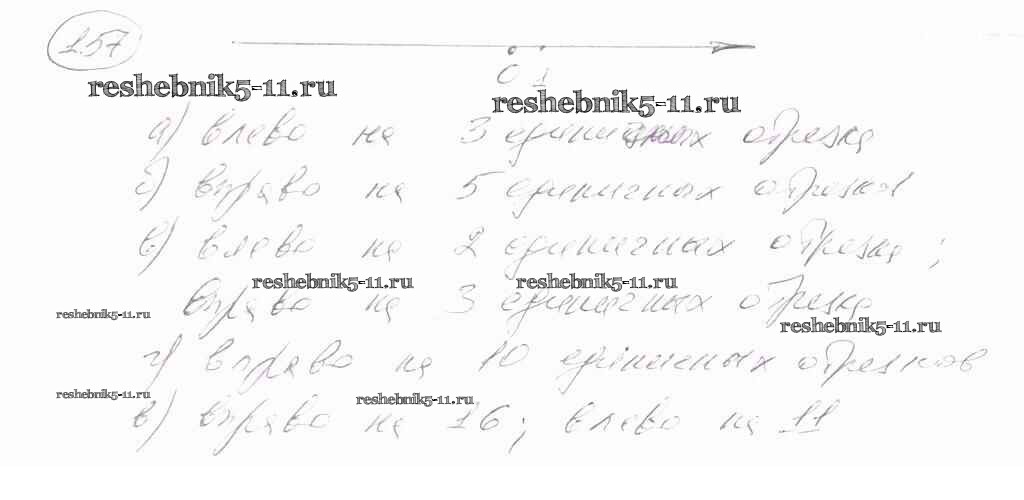 157
0 1
reshebnik5-11.ru
reshebnik5-11.ru
а) влево на 3 единичных отрезка
б) вправо на 5 единичных отрезка
в) влево на 2 единичных отрезка;
reshebnik5-11.ru reshebnik5-11.ru
вправо на 3 единичных отрезка
reshebnik5-11.ru
reshebnik5-11.ru
г) вправо на 10 единичных отрезков
reshebnik5-11.ru
reshebnik5-11.ru
в) вправо на 16; влево на 11